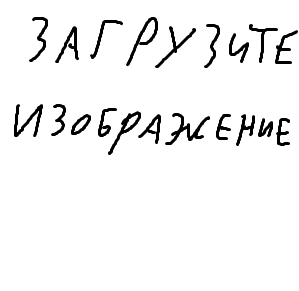 ЗАГРУЗИТЕ
ИЗОБРАЖЕНИЕ